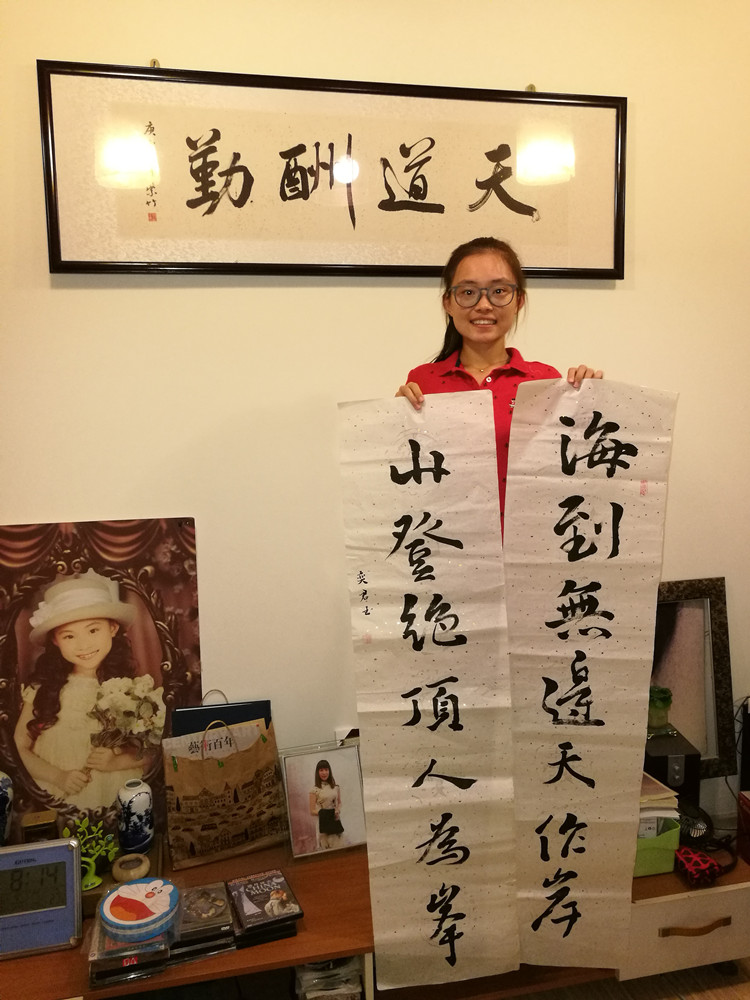 天道酬勤
庚
海到無邊天作岸
山登絶頂人為峯
奕君书
藝術百年
8:14
MOON